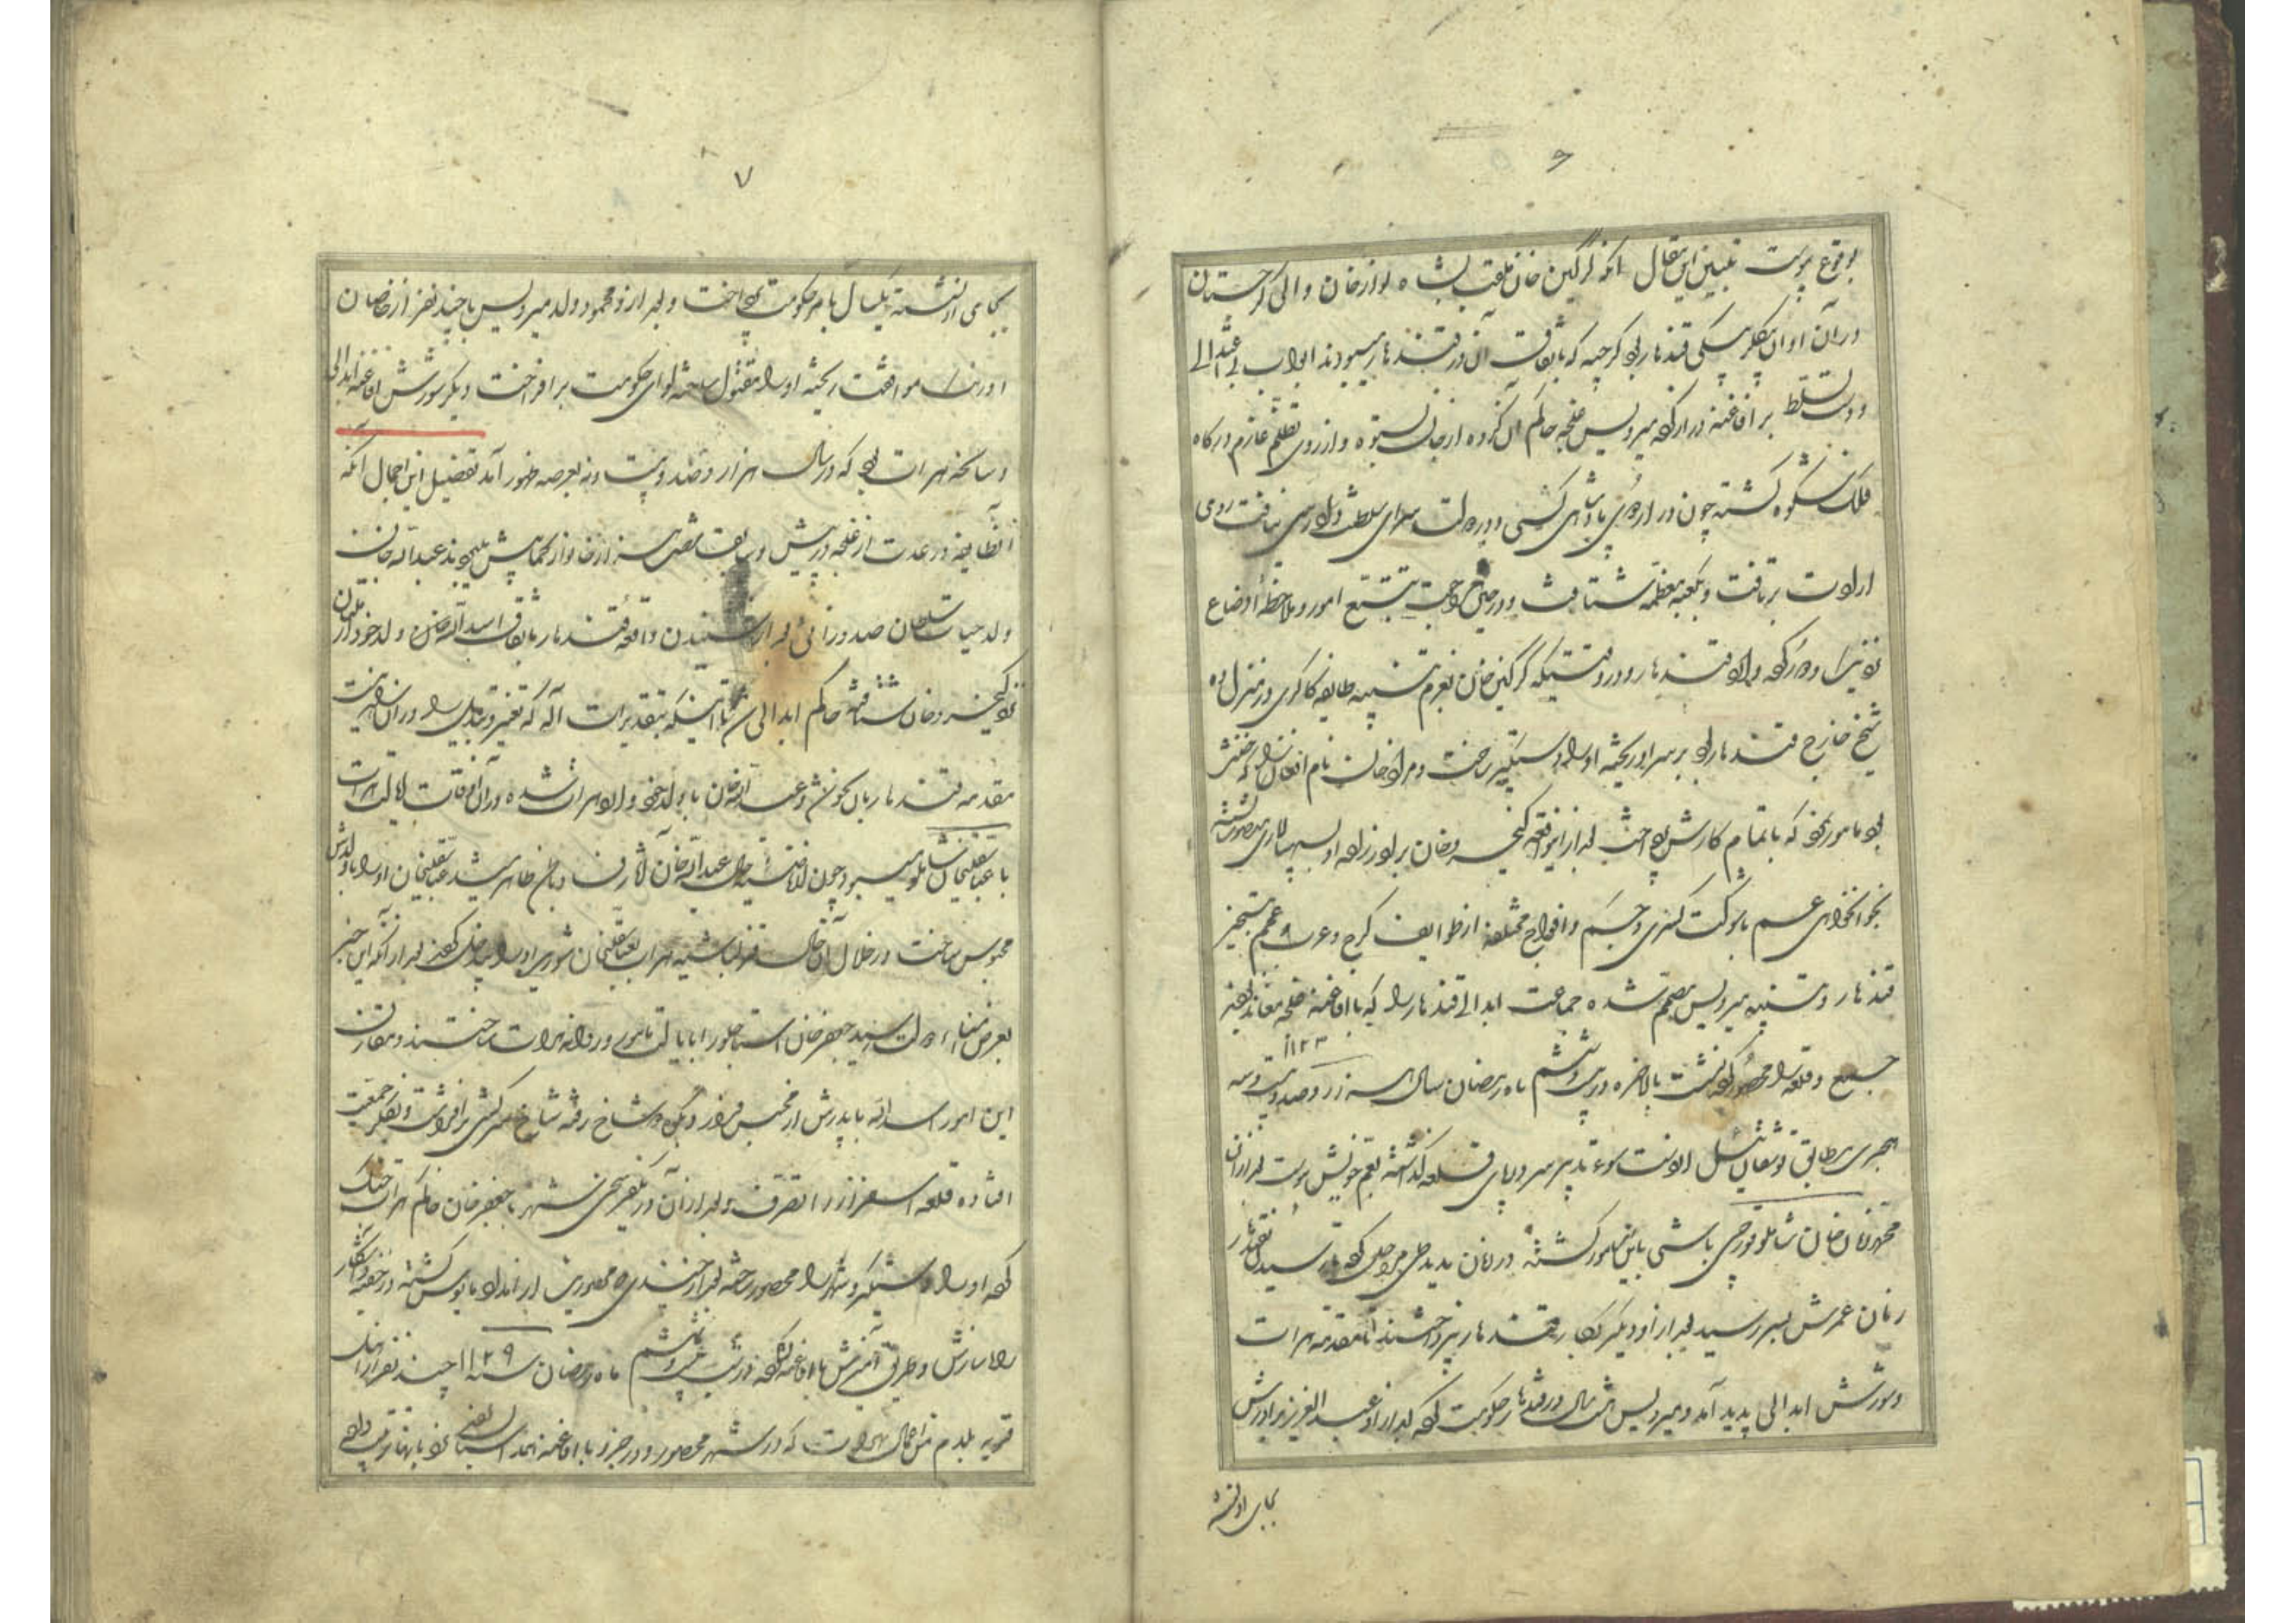 ۶
بوقوع پیوست تبیین این مقال آنکه گرگین خان ملقب بشاه نواز خان والی گرجستان
در آن اوان بیگلربیگی قندهار بود گرجیه که باتفاق آن در قندهار میبودند ابواب بی اعتدالی
و دست تسلط بر افاغنه دراز کرده میرویس غلجه حاکم آن گروه از جان بستوه و از روی تظلم عازم درگاه
فلک شکوه گشته چون در اردوی پادشاهی کسی در دولت سرای سلطنت دادرسی نیافت روی
ارادت برتافت و بکعبه معظمه شتافت و در حین مراجعت بتتبع امور و ملاحظه اوضاع
نوبتی را در کرده وارد قندهار و در وقتیکه گرگین خان بعزم تنبیه طایفه کاکری در منزل ده
شیخ خارج قندهار بود بر سر او ریخته او را دستگیر ساخت و مراد خان نام افغان را که
بود مامور نمود که باتمام کارش پرداخت بعد از این واقعه کیخسرو خان برادر زاده او بسپهسالاری منصوب گشته
بخونخواهی عم با شوکت کسری و جم و افواج مختلفه از طوایف گرج و عرب و عجم بتسخیر
قندهار و تنبیه میرویس مصمم شده جماعت ابدالی قندهار را که با افاغنه غلجه معاند بودند
جمع و قلعه را محصور کرده نشست بالاخره در بیست و ششم ماه رمضان سال هزار و صد و بیست و سه
۱۱۲۳
هجری مطابق توشقان ئیل از دست سوء تدبیر سر در پای قلعه گذاشته بعم خویش پیوست بعد از آن
محمد زمان خان شاملو قورچی باشی باین امر مامور گشته در زمان بدید طی مراحل کرده تا رسیدن بقندهار
زمان عمرش بسر رسید بعد از او دیگر بکار قندهار نپرداختند تا مقدمه هرات
و شورش ابدالی پدید آمد و میرویس هشت سال در قندهار حکومت کرده بعد از او عبدالعزیز برادرش
بجای او نشسته
۷
بجای او نشسته یکسال بامر حکومت پرداخت و بعد از او محمود ولد میرویس با چند نفر از خاصان
او رنگ موافقت ریخته او را مقتول ساخته لوای حکومت برافراخت دیگر شورش افاغنه ابدالی
و سانحه هرات بود که در سال هزار و صد و بیست و نه بعرصه ظهور آمد تفصیل این اجمال آنکه
آنطایفه در عدت از غلجه در پیش و سابق بر شصت هزار خانوار کمابیش میبودند عبدالله خان
ولد حیات سلطان صدوزائی بعد از شنیدن واقعه قندهار باتفاق اسدالله خان ولد خود از ملتان
نزد کیخسرو خان شتافته حاکم ابدالی شد تا اینکه بتقدیرات اله که تغییر و تبدیل را در آن راه نیست
مقدمه قندهار بآن نحو شد و عبدالله خان با ولد خود وارد هرات شده در آن اوقات ایالت هرات
با عباسقلیخان شاملو میبود چون از ناصیه حال عبدالله خان آثار فساد باطن ظاهر شد عباسقلیخان او را با ولدش
محبوس ساخت در خلال آن حال قزلباشیه هرات بعباسقلیخان شوریده او را بیدخل کردند بعد از آنکه این خبر
بعرض امنای دولت رسید جعفر خان استاجلو را بایالت مامور و روانه هرات ساختند و مقارن
این امور اسدالله با پدرش از محبس فرار و بکوه دوشاخ رفته شاخ سرکشی برافراشت و بفکر جمعیت
افتاده قلعه اسفزار را تصرف و بعد از آن در یکفرسخی شهر با جعفر خان حاکم هرات جنگ
کرده او را دستگیر و شهر را محصور ساخته بعد از چندی محصورین از امداد مایوس گشته در خفیه و آشکار
راه سازش و طریق آمیزش با افاغنه گشوده در شب بیست و ششم ماه رمضان سنه ۱۱۲۹ چند نفر از اهالی
قریه بلدم من اعمال هرات که در شهر محصور و در جزو با افاغنه همداستان بودند